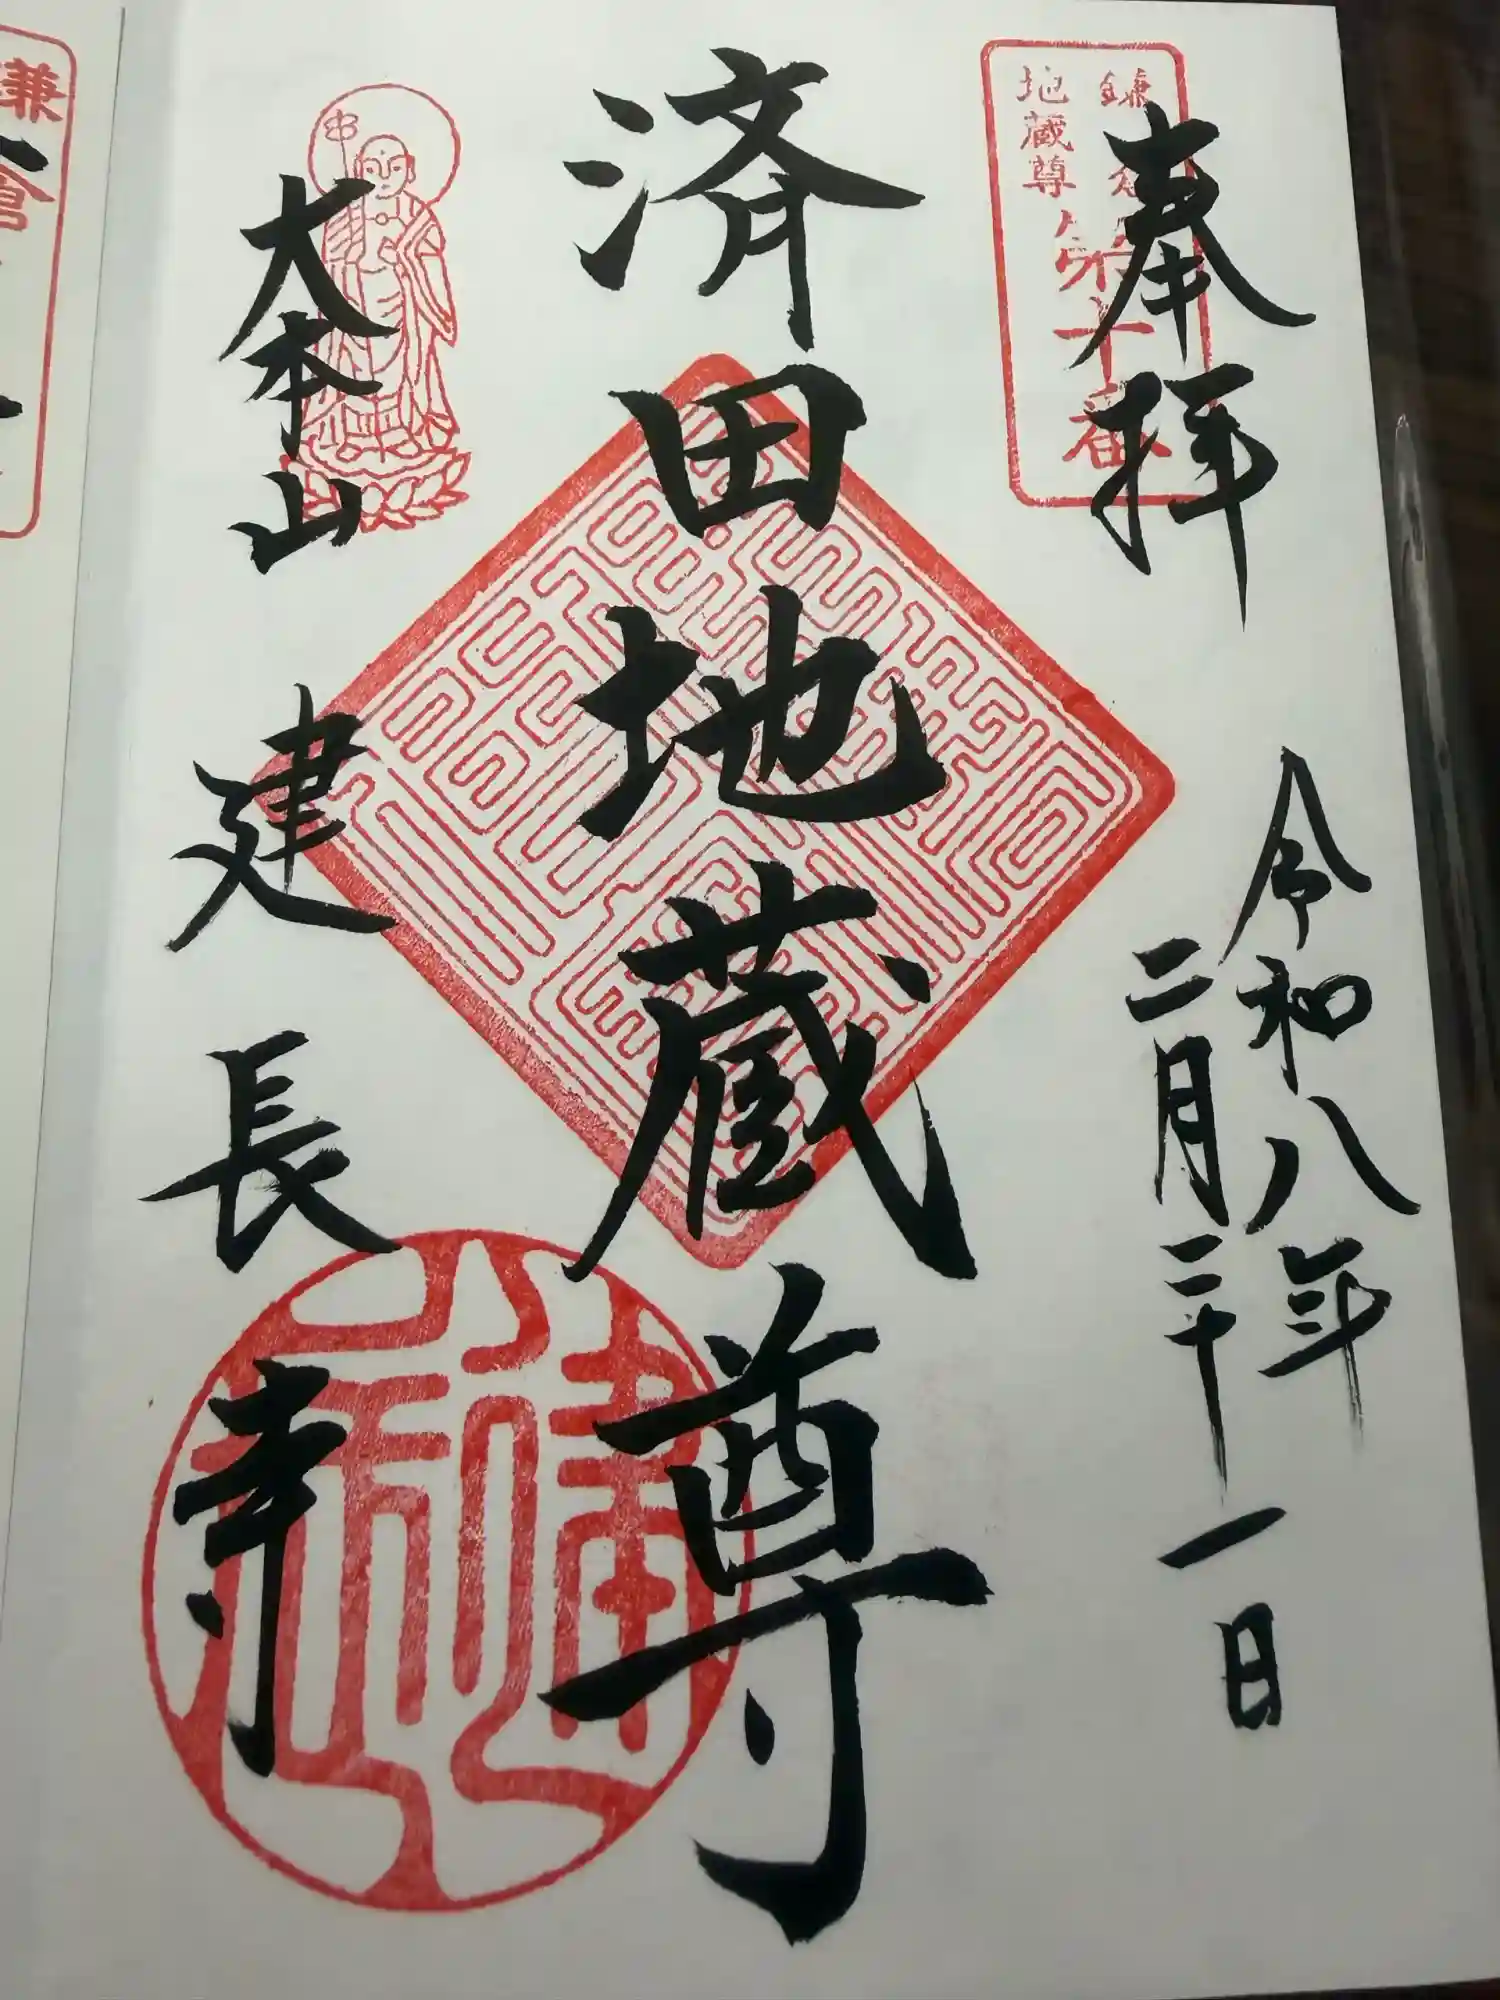 奉拝
令和八年
二月二十一日
地蔵尊
第十番
済田地蔵尊
大本山
建長寺